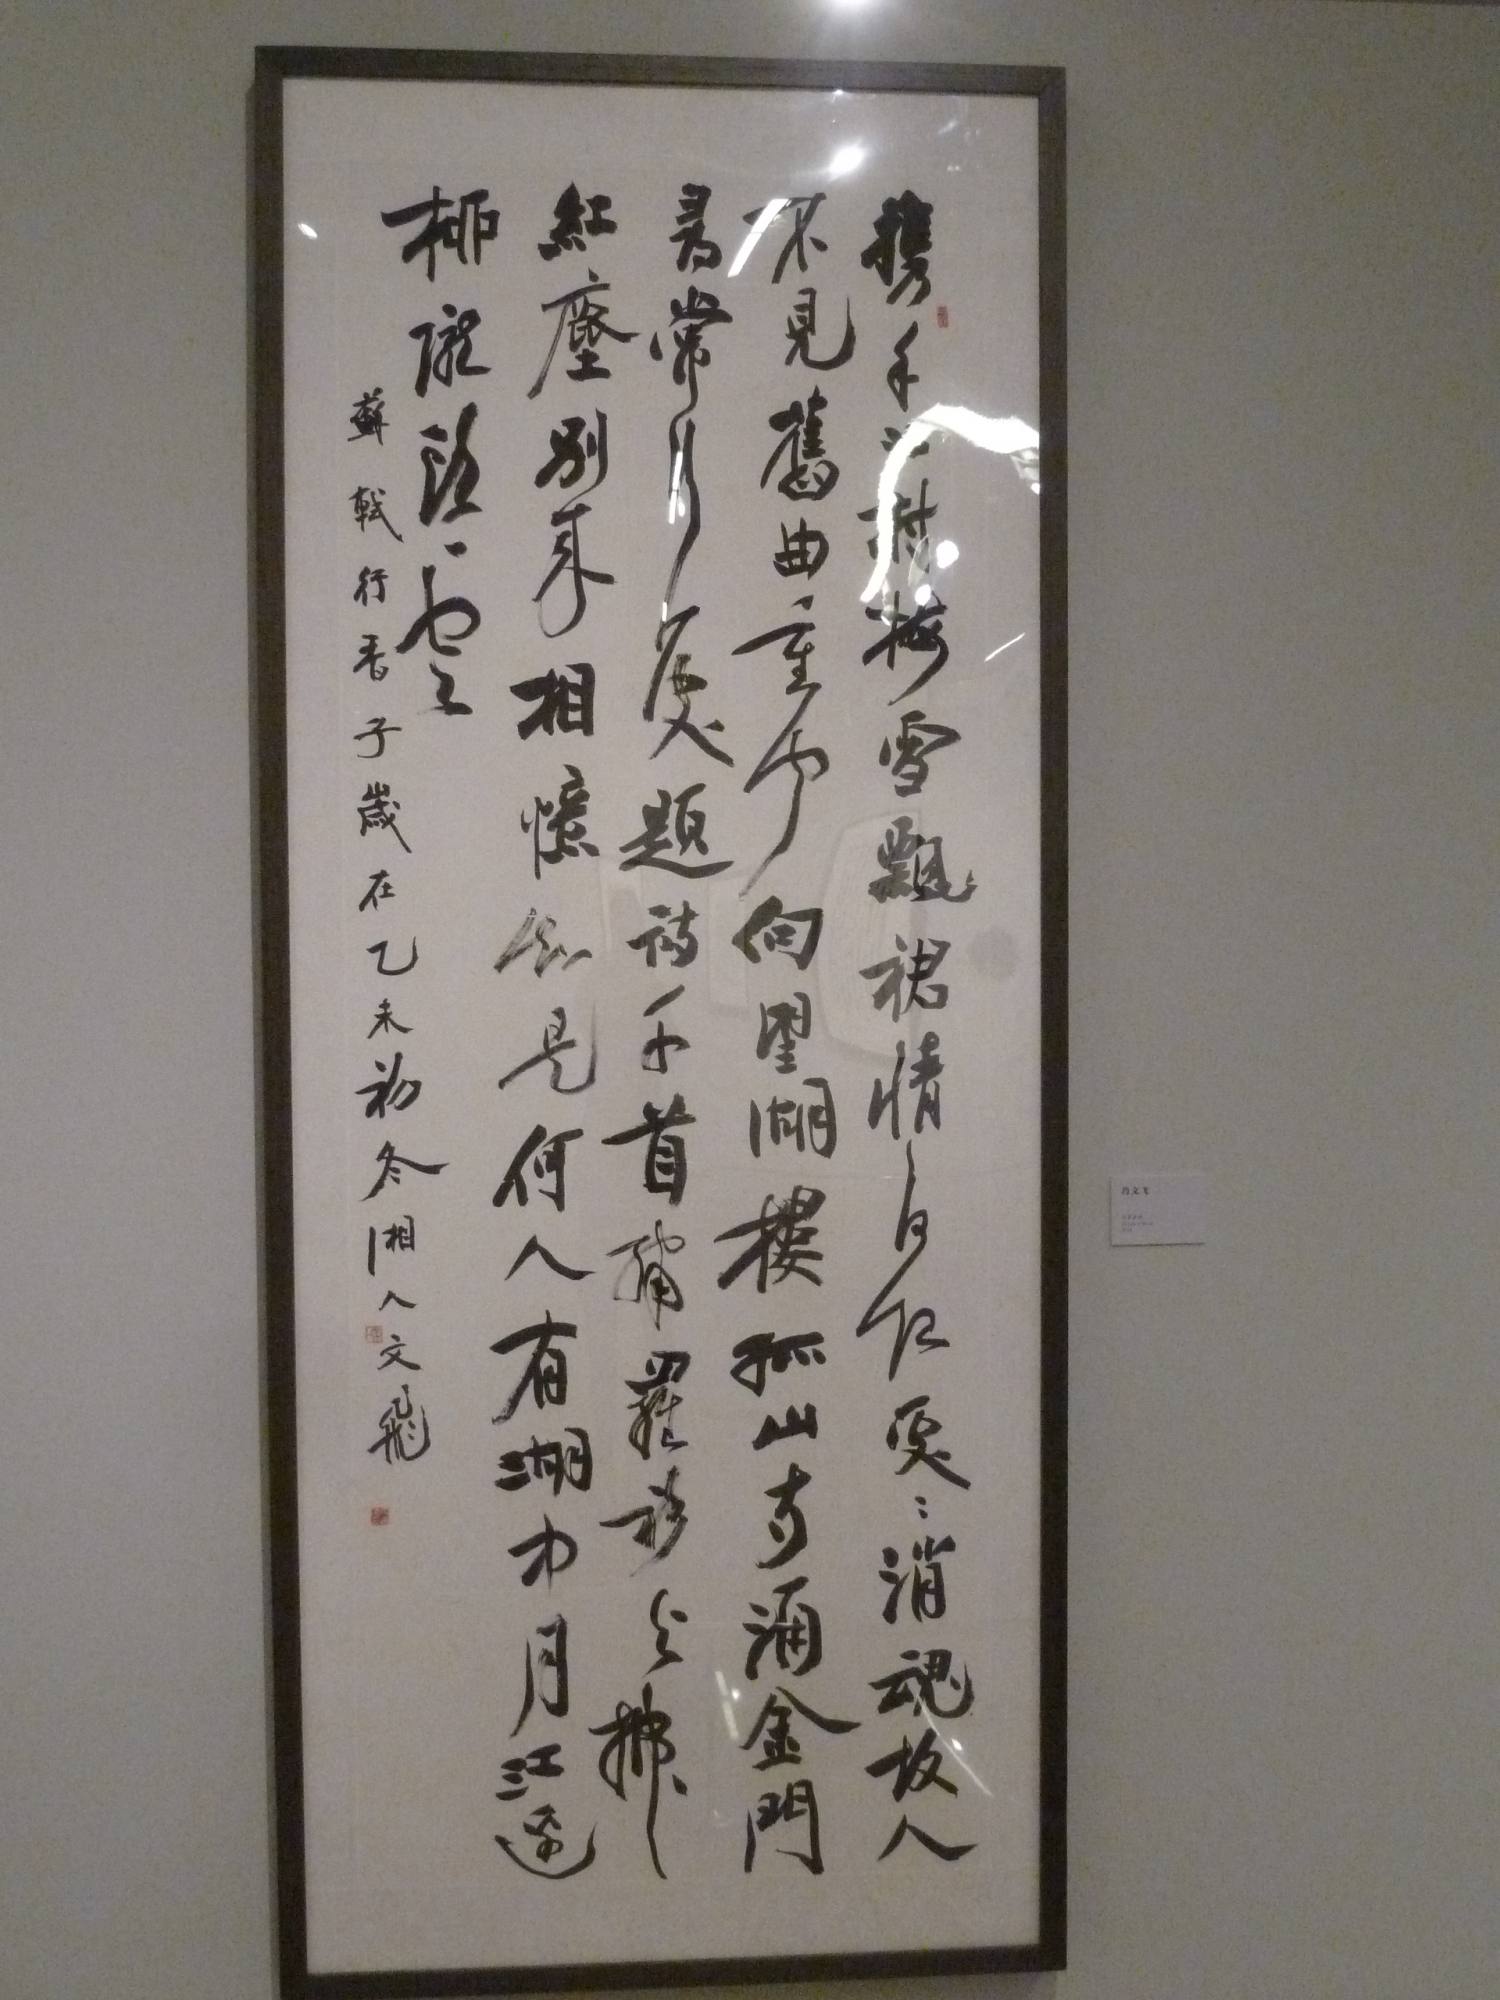 攜手江村梅雪飄裙情何限處〻消魂故人
不見舊曲重聞向望湖樓孤山寺涌金門
尋常行處題詩千首繡羅衫与拂
紅塵別來相憶知是何人有湖中月江邊
柳隴頭雲
蘇軾行香子歲在乙未初冬湘人文飛
肖文飞